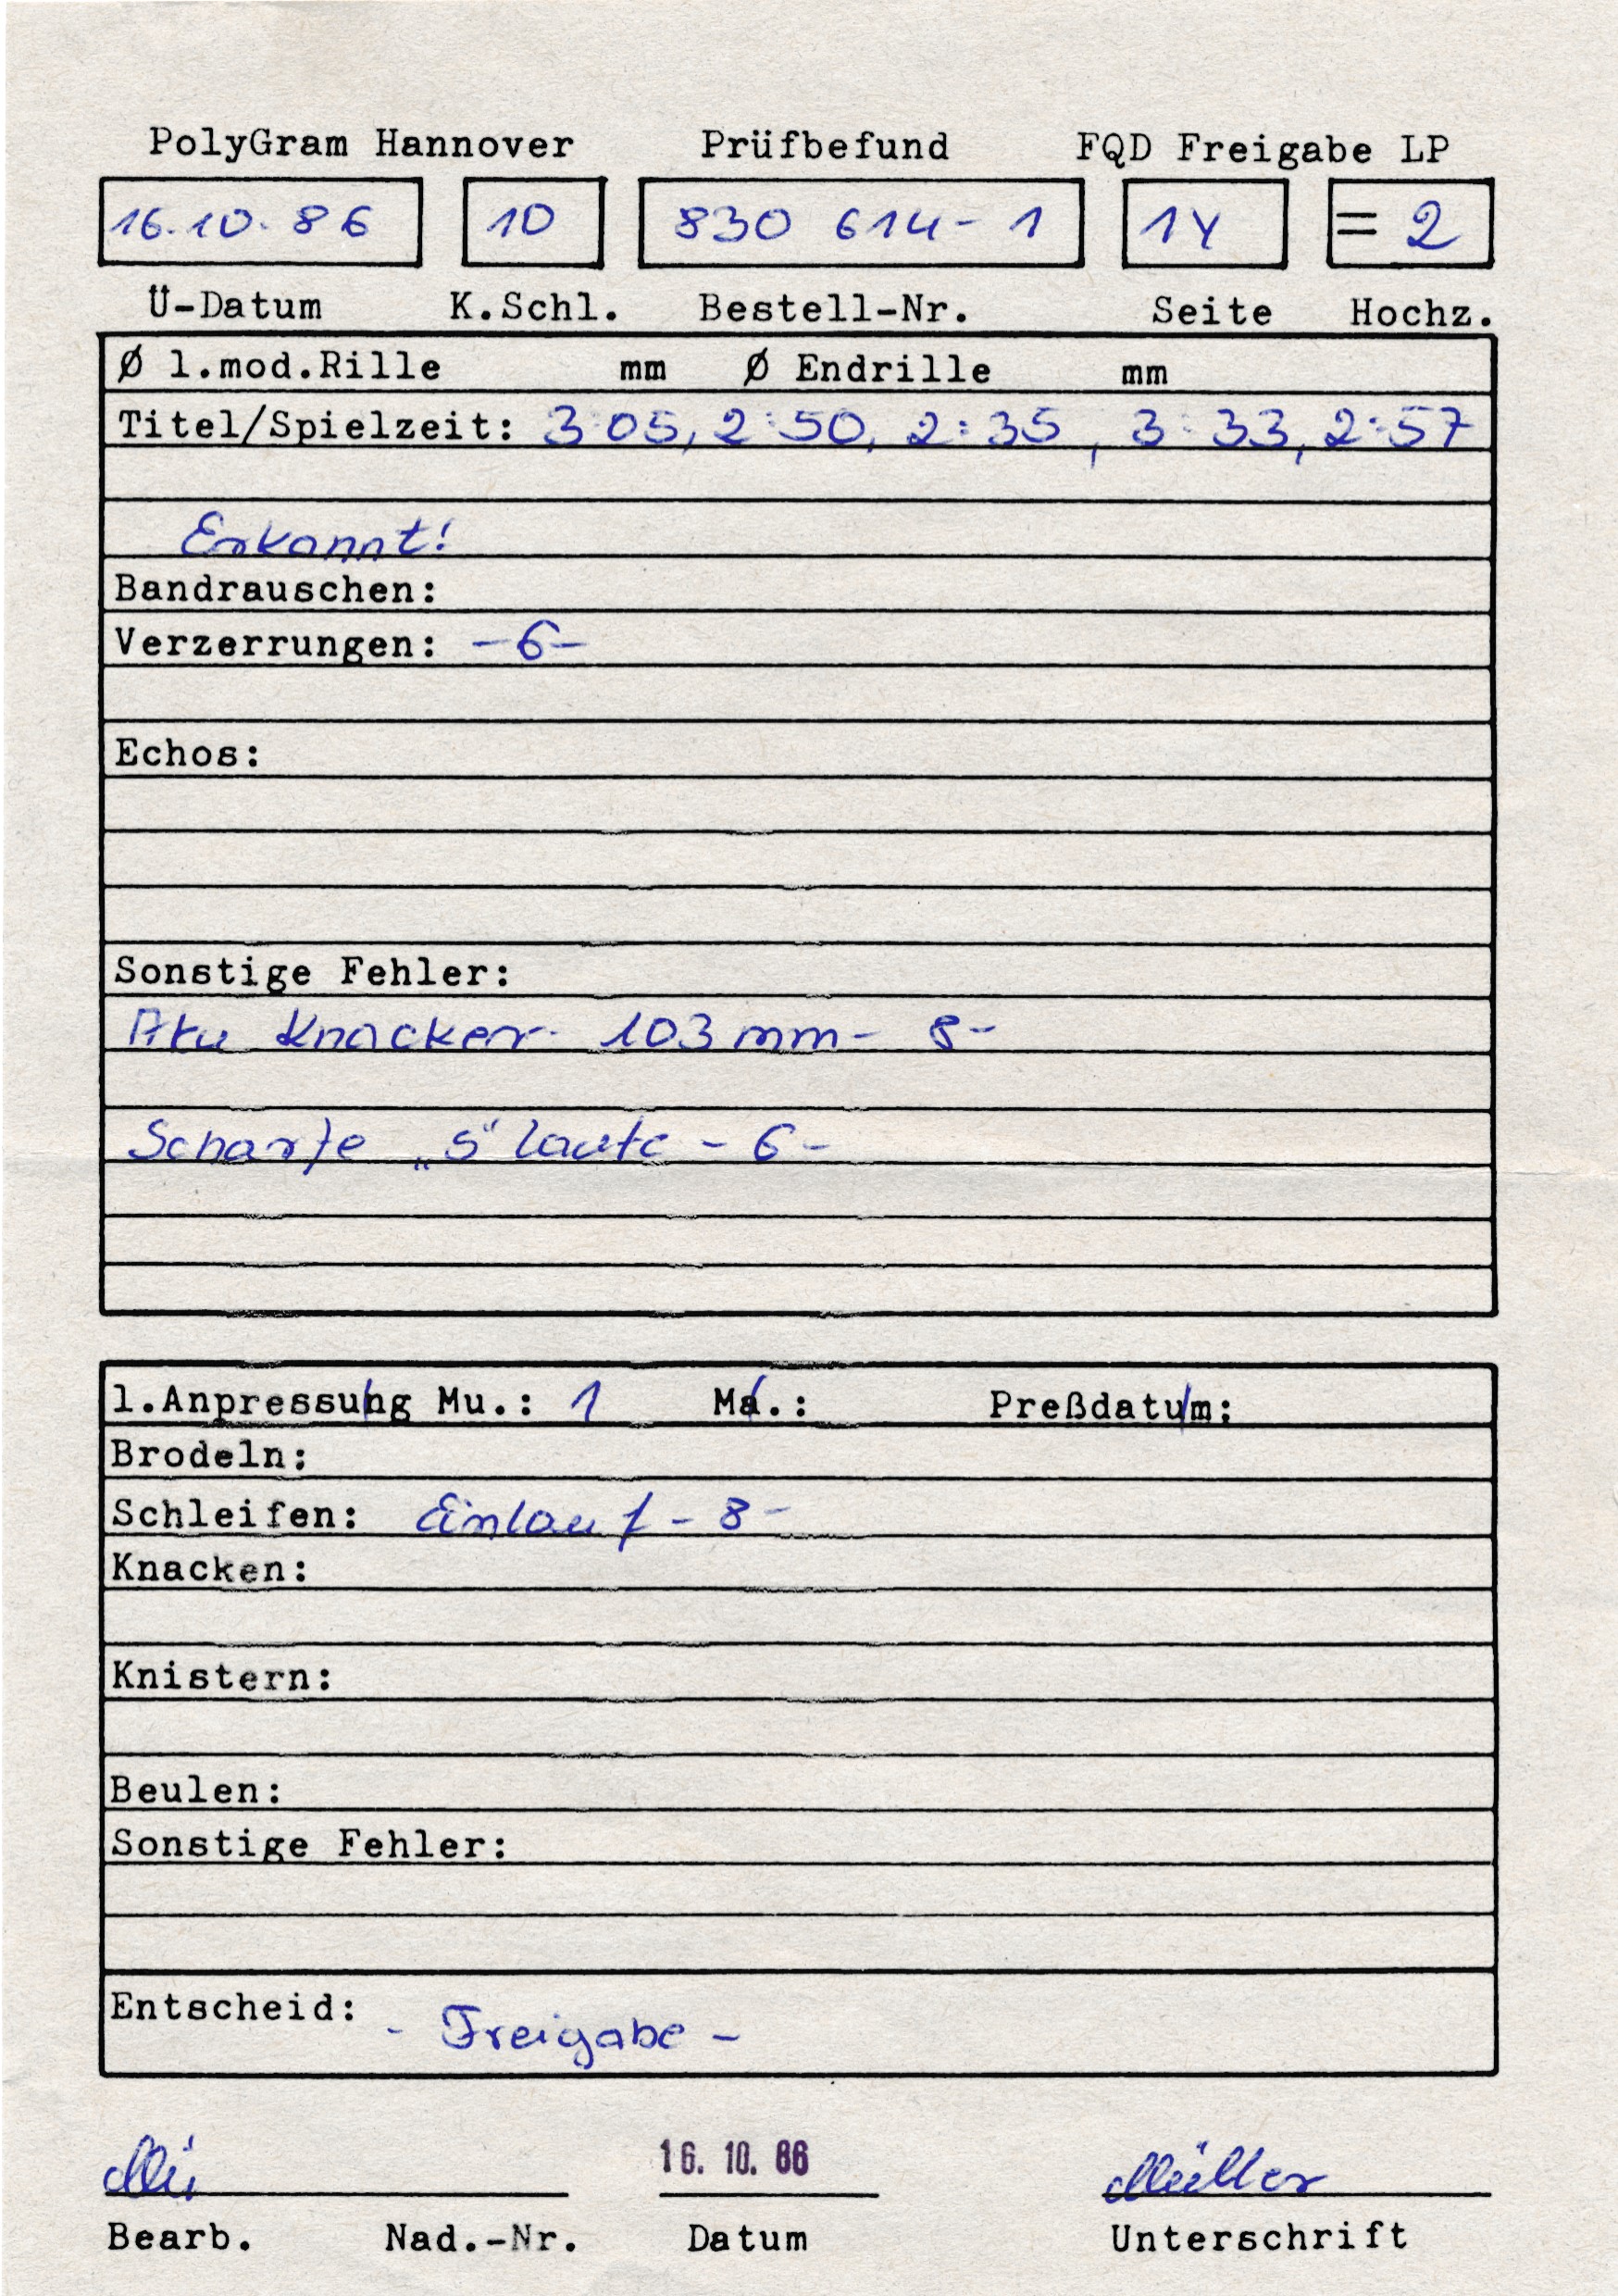 PolyGram Hannover Prüfbefund FQD Freigabe LP
16.10.86 10 830 614-1 1Y = 2
Ü-Datum K.Schl. Bestell-Nr. Seite Hochz.
Ø 1.mod.Rille mm Ø Endrille mm
Titel/Spielzeit: 3:05, 2:50, 2:35, 3:33, 2:57
Erkannt!
Bandrauschen:
Verzerrungen: -6-
Echos:
Sonstige Fehler:
Knacker- 103 mm- 8-
Scharfe „S" laute - 6-
1.Anpressung Mu.: 1 Ma.: Preßdatum:
Brodeln:
Schleifen: Einlauf - 8-
Knacken:
Knistern:
Beulen:
Sonstige Fehler:
Entscheid: - Freigabe -
Mü 16. 10. 86 Müller
Bearb. Nad.-Nr. Datum Unterschrift